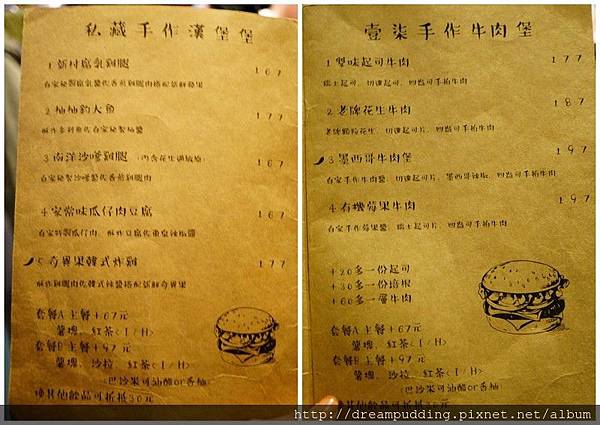 私藏手作漢堡堡
1 新村腐乳雞腿 167
自家秘製腐乳醬佐香煎雞腿肉搭配新鮮蘋果
2 柚柚釣大魚 177
酥炸多利魚佐自家秘製柚醬
3 南洋沙嗲雞腿 (內含花生過敏慎) 167
自家秘製沙嗲醬佐香煎雞腿肉
4 家常味瓜仔肉豆腐 167
自家特製瓜仔肉、酥炸豆腐佐
5 奇異果韓式炸雞 177
酥炸雞腿肉佐韓式辣醬搭配新鮮奇異果
套餐A 主餐+67元
薯塊、紅茶(I/H)
套餐B 主餐+97元
薯塊、沙拉、紅茶(I/H)
(巴沙米可油醋or香柚)
換其他飲品可折抵30元
壹柒手作牛肉堡
1 雙味起司牛肉 177
瑞士起司、切達起司片、四盎司手拍牛肉
2 老牌花生牛肉 187
老牌顆粒花生、切達起司片、四盎司手拍牛肉
3 墨西哥牛肉堡 197
自家手作牛肉醬、切達起司片、墨西哥辣椒、四盎司手拍牛肉
4 有機莓果牛肉 197
自家手作莓果醬、瑞士起司片、四盎司手拍牛肉
+20多一份起司
+30多一份培根
+60多一層牛肉
套餐A 主餐+67元
薯塊、紅茶(I/H)
套餐B 主餐+97元
薯塊、沙拉、紅茶(I/H)
(巴沙米可油醋or香柚)
換其他飲品可折抵30元
http://dreampudding.pixnet.net/album